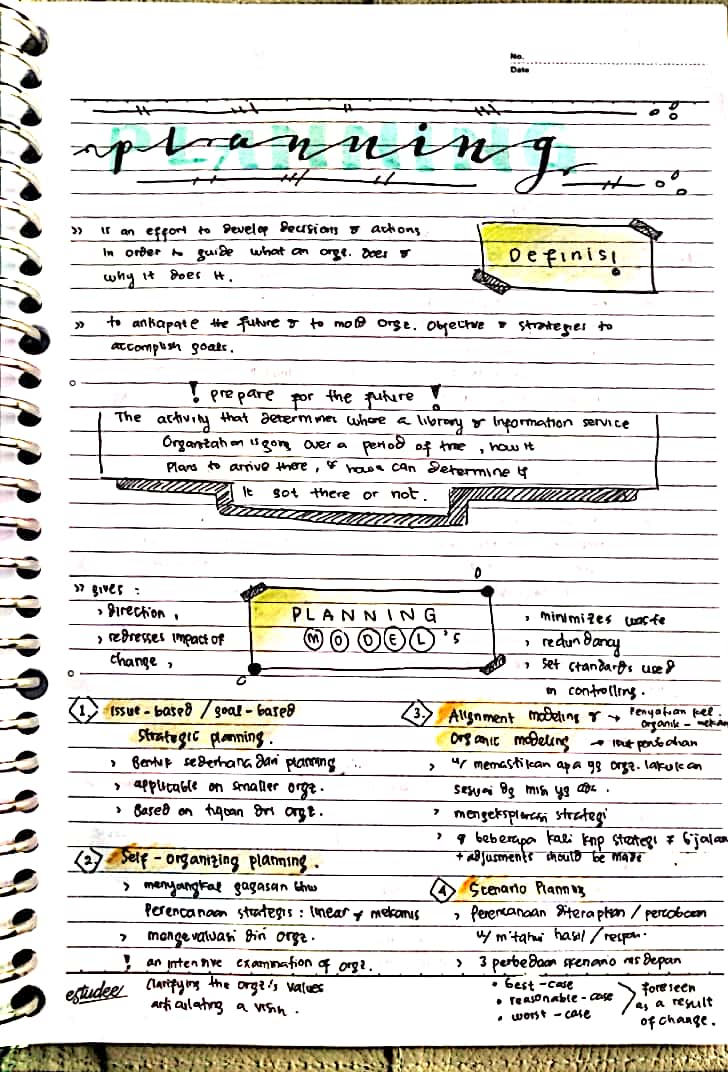 No.
Date
PLANNING
planning
>> is an effort to develop decisions & actions
in order to guide what an orgz. does &
why it does it.
Definisi
>> to antikapate the future & to mold orgz. objective & strategies to
accomplish goals.
! prepare for the future !
The activity that determines where a library & information service
Organization is going over a period of time, how it
Plans to arrive there, & how can determine if
it got there or not.
>> gives :
> direction,
> redresses impact of
change,
PLANNING
MODEL'S
> minimizes waste
> redundancy
> set standards used
in controlling.
1. Issue-based / goal-based
Strategic planning.
> Bentuk sederhana dari planning
> applicable on smaller orgz.
> Based on tujuan dri orgz.
2 Self-organizing planning.
> menyangkal gagasan bhw
Perencanaan strategis : linear & mekanis
> mengevaluasi diri orgz.
! an intensive examination of orgz.
clarifying the orgz's values
articulating a vision.
3. Alignment modeling & → Penyatuan kel.
Organic modeling → organik - mekan
> u/ memastikan apa yg orgz. lakukan
sesuai dg misi yg
> mengeksplorasi strategi
> beberapa kali knp strategi ≠ bjalan
+ adjusments should be made
4 Scenario Planning
> Perencanaan diterapkan / percobaan
u/ m'tahui hasil / respon.
> 3 perbedaan skenario ms depan
• best-case
• reasonable-case
• worst-case
foreseen
as a result
of change.
estudee